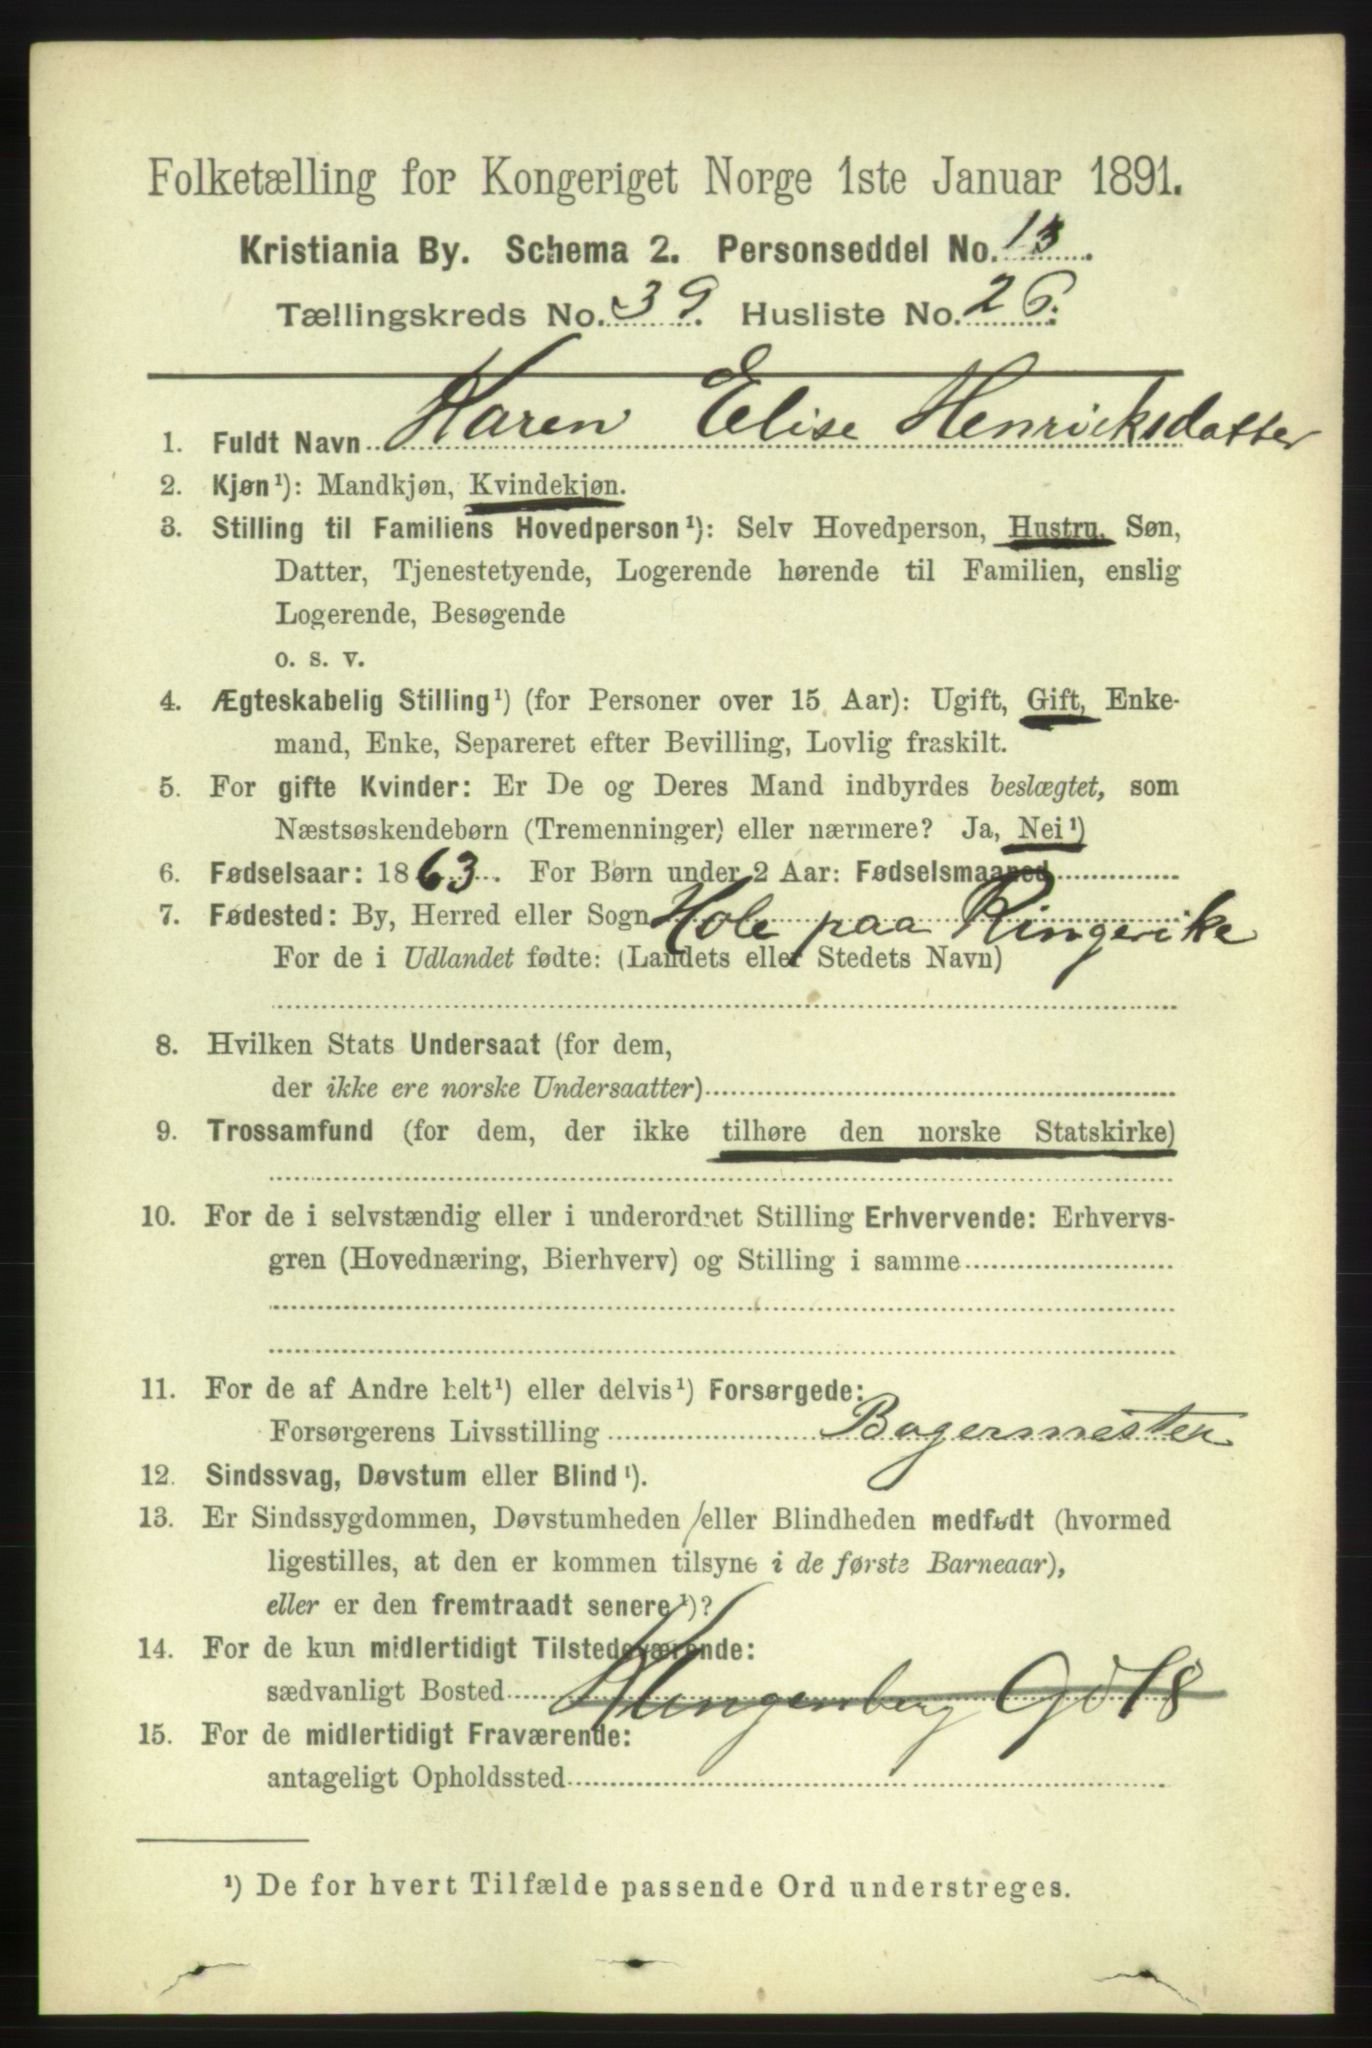 Folketælling for Kongeriget Norge 1ste Januar 1891.
Kristiania By. Schema 2. Personseddel No. 13.
Tællingskreds No. 39. Husliste No. 26.
1. Fuldt Navn Karen Elise Henricksdatter
2. Kjøn¹): Mandkjøn, Kvindekjøn.
3. Stilling til Familiens Hovedperson¹): Selv Hovedperson, Hustru, Søn,
Datter, Tjenestetyende, Logerende hørende til Familien, enslig
Logerende, Besøgende
o. s. v.
4. Ægteskabelig Stilling¹) (for Personer over 15 Aar): Ugift, Gift, Enke-
mand, Enke, Separeret efter Bevilling, Lovlig fraskilt.
5. For gifte Kvinder: Er De og Deres Mand indbyrdes beslægtet, som
Næstsøskendebørn (Tremenninger) eller nærmere? Ja, Nei¹)
6. Fødselsaar: 1863. For Børn under 2 Aar: Fødselsmaaned
7. Fødested: By, Herred eller Sogn Hole paa Ringerike
For de i Udlandet fødte: (Landets eller Stedets Navn)
8. Hvilken Stats Undersaat (for dem,
der ikke ere norske Undersaatter)
9. Trossamfund (for dem, der ikke tilhøre den norske Statskirke)
10. For de i selvstændig eller i underordnet Stilling Erhvervende: Erhvervs-
gren (Hovednæring, Bierhverv) og Stilling i samme
11. For de af Andre helt¹) eller delvis¹) Forsørgede:
Forsørgerens Livsstilling Bagermester
12. Sindssvag, Døvstum eller Blind¹).
13. Er Sindssygdommen, Døvstumheden eller Blindheden medfødt (hvormed
ligestilles, at den er kommen tilsyne i de første Barneaar),
eller er den fremtraadt senere¹)?
14. For de kun midlertidigt Tilstedeværende:
sædvanligt Bosted Klingenberg Gd 18
15. For de midlertidigt Fraværende:
antageligt Opholdssted
¹) De for hvert Tilfælde passende Ord understreges.